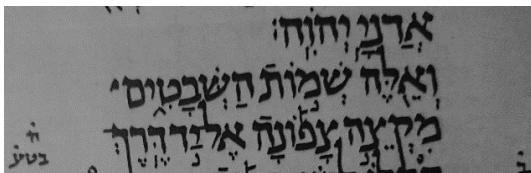 אֲדֹנָי יְהוִֹה׃
וְאֵלֶּה שְׁמוֹת הַשְּׁבָטִים
מִקְצֵה צָפוֹנָה אֶל־יַד דֶּרֶךְ
ח̇
בטע̇